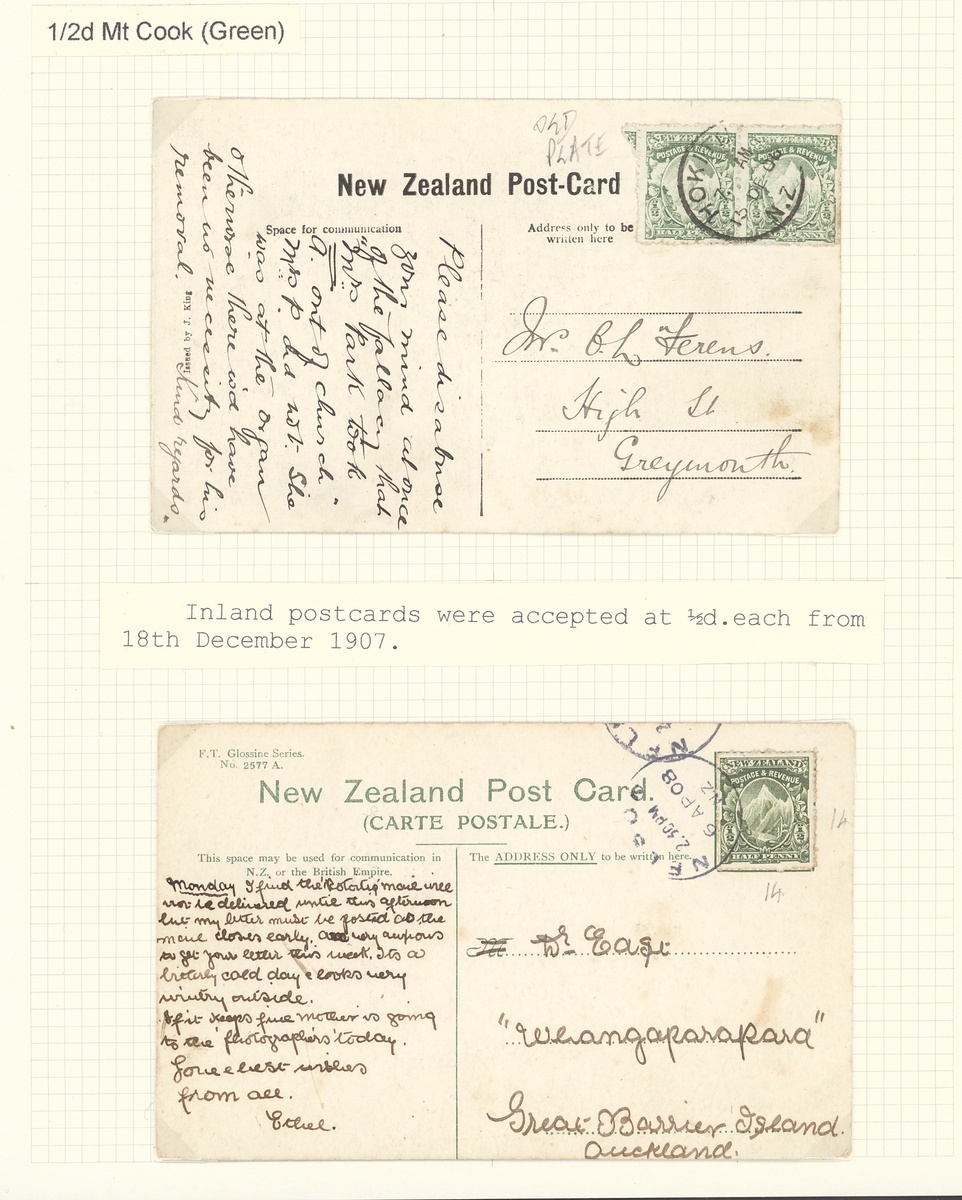 1/2d Mt Cook (Green)
OLD
PLATE
New Zealand Post-Card
Space for communication
Address only to be
written here
NEW ZEALAND
POSTAGE & REVENUE
HALF PENNY
NEW ZEALAND
POSTAGE & REVENUE
HALF PENNY
N.Z.
Please disabuse
your mind at once
"of the fallacy that
Mrs Park took
A. out of church"
Mrs P. did not. She
was at the organ
otherwise there w'd have
been no necessity for his
removal.
Kind regards.
Issued by J. King
Mr. O. L. Ferens.
High St
Greymouth.
Inland postcards were accepted at ½d.each from
18th December 1907.
F.T. Glossine Series.
No. 2577 A.
New Zealand Post Card.
(CARTE POSTALE.)
This space may be used for communication in
N.Z. or the British Empire.
The ADDRESS ONLY to be written here.
2.30PM
6 AP 08
NZ
NEW ZEALAND
POSTAGE & REVENUE
HALF PENNY
14
14
Monday I find the Rotortiq mail will
not be delivered until this afternoon
but my letter must be posted as the
mail closes early. am very anxious
to get your letter this week. Its a
bitterly cold day & looks very
wintry outside.
If it keeps fine mother is going
to the 'photographers' today.
Love & best wishes
from all.
Ethel.
Dr East
"Whangaparapara"
Great Barrier Island.
Auckland.